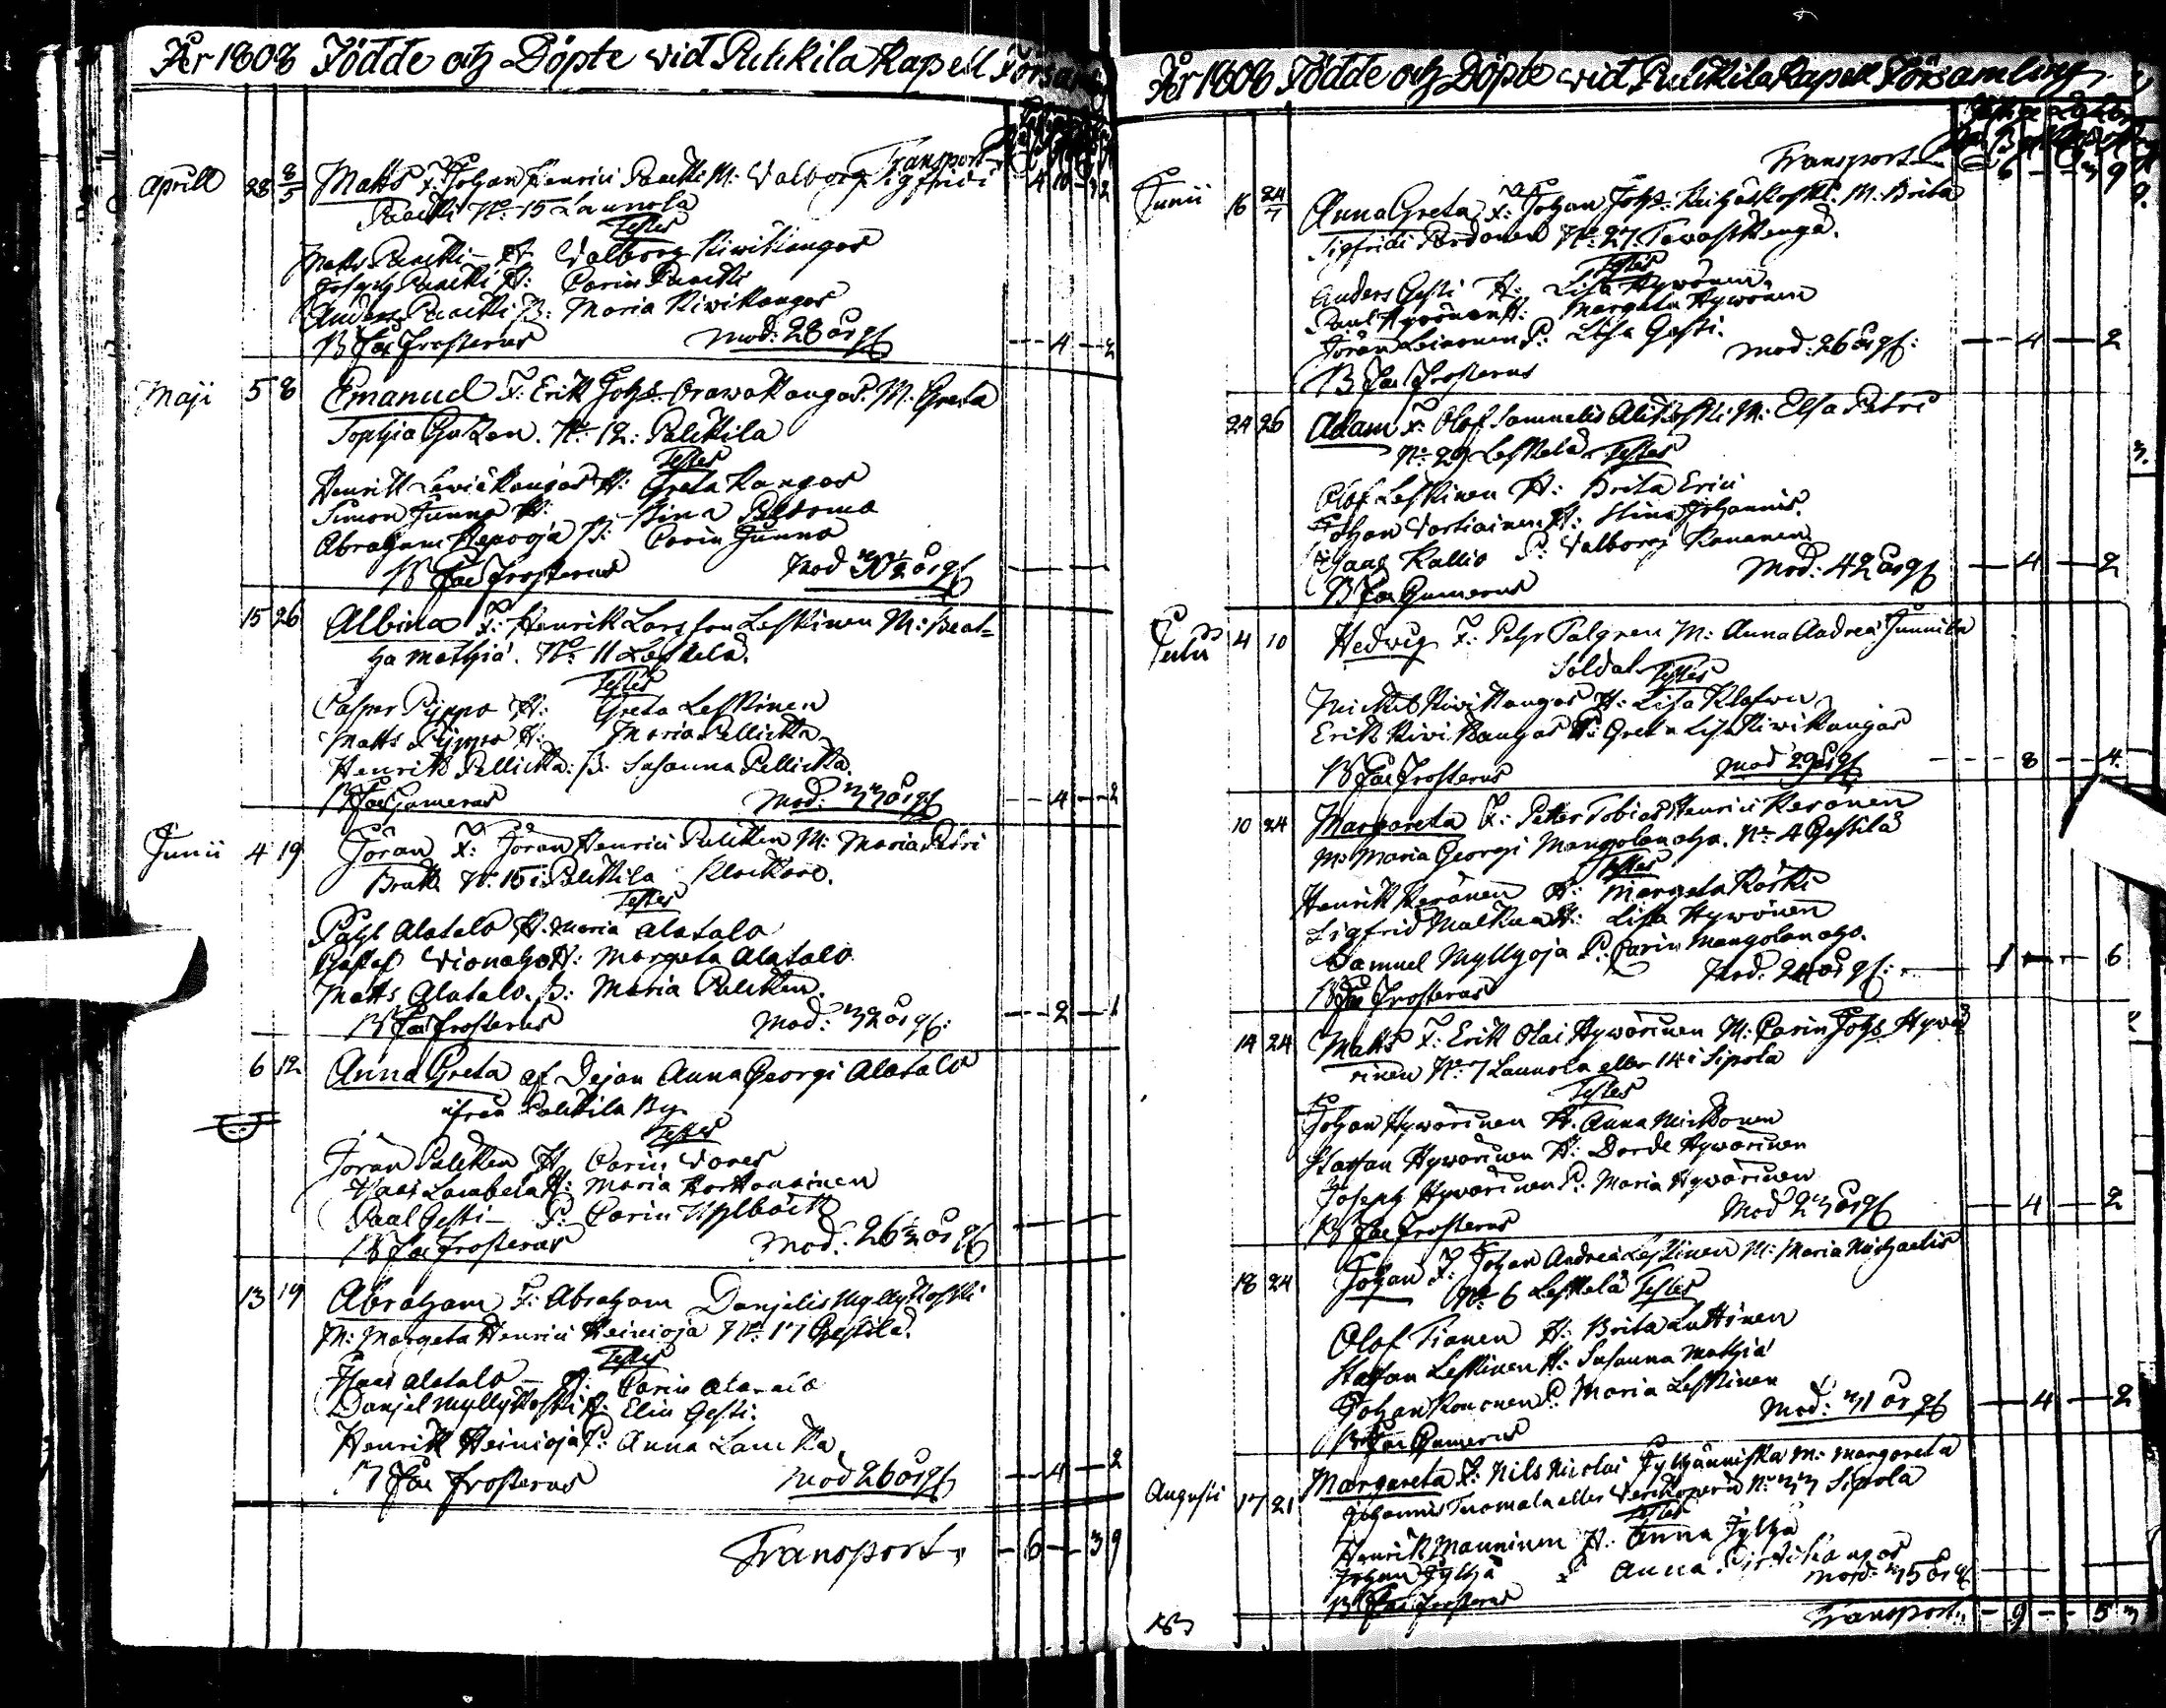 År 1808 Födde och Döpte vid Pulkkila Kapell Försam
Transport
4 10 – 32
Aprill 28 8/5 Matts F: Johan Henrici Paackki M: Valborg Sigfridi
Paackki No 15 Launola
Testes
Matts Paackki – H: Valborg Kiwikangas
Joseph Paackki H: Carin Paackki
Anders Paackki P: Maria Kiwikangas
B Fac Frosterus Mod: 28 år gl – 4 – 2
Maji 5 8 Emanuel F: Erik Johs: Orawakangas. M. Greta
Sophia Gutzen. No 12: Pulkkila
Testes
Henrik Leviäkangas H: Greta Kangas
Simon Junno H: Stina Peldomo
Abraham Repooja P: Carin Junno
B Fac Frosterus Mod 30½ år gl
15 26 Albina F: Henrik Larsson Leskinen M: Beat=
ha Mathiä. No 11 Leskelä.
Testes
Casper Pijppo H: Greta Leskinen
Matts Pijppo H: Maria Pellickka
Henrik Pellickka: P: Susanna Pellickka.
B Fac Gumerus Mod: 33 år gl – 4 – 2
Junii 4 19 Jöran F: Jöran Henrici Pulkken M: Maria Petri
Bratt No 15 i Pulkkila Klockare.
Testes
Påhl Alatalo H: Maria Alatalo
Gustaf Vionaho H: Margeta Alatalo
Matts Alatalo. P: Maria Pulkken.
B Fac Frosterus Mod: 32 år gl: – 2 – 1
6 12 Anna Greta af Pejan Anna Georgi Alatalo
ifrån Pulkkila By
Testes
Jöran Pulkken H. Carin Vares
Isaac Lambela H: Maria Korkonainen
Paul Gesti – P: Carin Uhlbäck
B Fac Frosterus Mod: 26½ år gl
13 19 Abraham F: Abraham Danjelis Myllykoski
M: Margeta Henrici Heinioja No 17 Gestilä.
Testes
Isaac Alatalo – H: Carin Alatalo
Danjel Myllykoski H: Elin Gesti.
Henrik Heinioja P: Anna Laucka
B Fac Frosterus Mod 26 år gl – 4 – 2
Transport – 6 – 39
År 1808 Födde och Döpte vid Pulkkila Kapell Församling
Transport 6 – 39
Junii 16 24/7 Anna Greta F: Johan Johs: Keihäskoski. M. Brita
Sigfridi Pardanen No 27 Tavastkenga.
Testes
Anders Gesti H: Lisa Hyvönen
Paul Hyvönen H: Margeta Hyvönen
Jöran Leinonen P: Lisa Gesti.
B Fac Frosterus Mod: 26 år gl: – 4 – 2
24 26 Adam F: Olof Samuelis Alikoski M: Elsa Petri
No 29 Leskelä Testes
Olof Leskinen H: Brita Erici
Johan Vartiainen H: Stina Johannis.
Isaac Kallio P: Valborg Kananen
B Fac Gumerus Mod: 42 år gl – 4 – 2
Julii 4 10 Hedvig F: Pehr Palgren M: Anna Andreä Junnila
Soldat Testes
Mickel Kiwikangas H: Lisa Klafwer
Erik Kiwikangas P: Greta Lisa Kiwikangas
B Fac Frosterus Mod 29 år gl – 8 – 4
10 24 Margareta F: Petter Tobias Henrici Keränen
M: Maria Georgi Mangolanaho. No 4 Gestilä
Testes
Henrik Keränen H: Margeta Koski
Sigfrid Malkua H: Lisa Hyvönen
Samuel Myllyoja P: Carin Mangolanaho.
B Fac Frosterus Mod: 24 år gl: 1 – 6
14 24 Matts F: Erik Olai Hyvärinen M: Carin Johs: Hyvä
rinen No 7 Launola eller 14 i Sipola
Testes
Johan Hyvärinen H. Anna Mickonen
Staffan Hyvärinen H: Dorde Hyvärinen
Joseph Hyvärinen P: Maria Hyvärinen
B Fac Frosterus Mod 23 år gl – 4 – 2
18 24 Johan F: Johan Andreä Leskinen M: Maria Michaelis
No 6 Leskelä Testes
Olof Pianen H: Brita Luttinen
Staffan Leskinen H: Susanna Mathiä
Johan Kononen P: Maria Leskinen
B Fac Gumerus Mod: 31 år gl – 4 – 2
Augusti 17 21 Margareta F: Nils Nicolai Jylhänniska M: Margareta
Johannis Tuomala eller No 33 Sipola
Testes
Henrik Manninen H: Anna Jylhä
Johan Jylhä P Anna
B Fac Frosterus Mod: 35 år gl
183 Transport: – 9 – 53